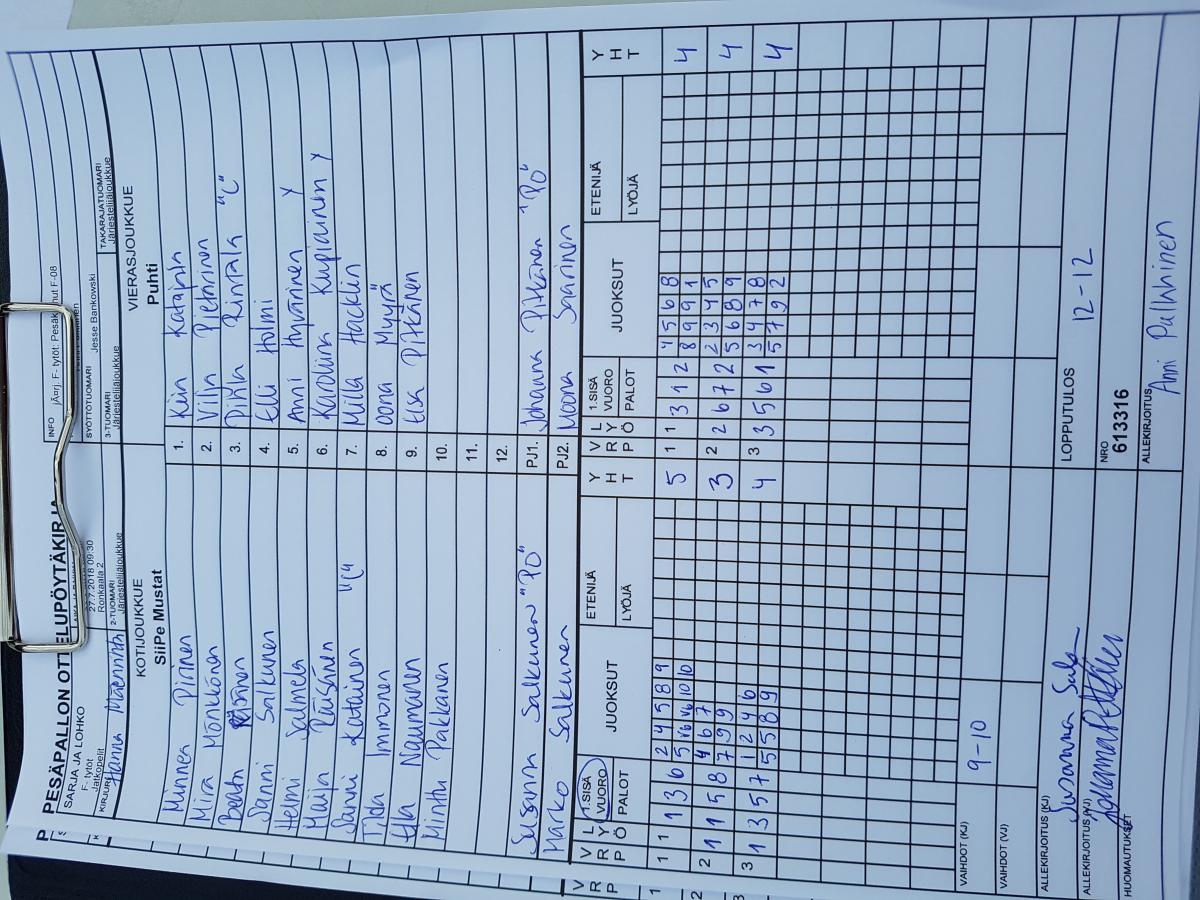 PESÄPALLON OTTELUPÖYTÄKIRJA
SARJA JA LOHKO
F- tytöt
Jatkopelit
27.7.2018 09:30
Ronkaala 2
INFO
SYÖTTÖTUOMARI
Jesse Bankowski
KIRJURI
Hanna
2-TUOMARI
Järjestelijäjoukkue
3-TUOMARI
Järjestelijäjoukkue
TAKARAJATUOMARI
Järjestelijäjoukkue
KOTIJOUKKUE
SiiPe Mustat
VIERASJOUKKUE
Puhti
Minnea Pirinen 1. Kiia Katajala
Mira Mönkönen 2. Vilja Pietarinen
3. Pinla Rintala "C"
Sanni Salkunen 4. Elli Holmi
Helmi Salmela 5. Anni Hyvärinen y
Maija Räisänen 6. Karoliina Kurpiainen y
Sanni Katainen "C" 7. Milla Hacklin
Tilda Immonen 8. Oona Myyrä
Ella Naumanen 9. Elsa Pitkänen
Minttu Pakkanen 10.
11.
12.
Susanna Salkunen "PO" PJ1. Johanna Pitkänen "PO"
Marko Salkunen PJ2. Moona Saarinen
V R P L Y Ö 1.SISÄ VUORO PALOT JUOKSUT ETENIJÄ LYÖJÄ Y H T V R P L Y Ö 1.SISÄ VUORO PALOT JUOKSUT ETENIJÄ LYÖJÄ Y H T
1 1 1 3 6 2 4 5 8 9 5 1 1 3 1 2 4 5 6 8 4
5 10 10 8 9 9 1
2 1 1 5 8 4 6 7 3 2 2 6 7 2 2 3 4 5 4
7 9 9 5 6 8 9
3 1 3 5 7 1 2 4 6 4 3 3 5 6 1 3 4 7 8 4
5 5 8 9 5 7 9 2
VAIHDOT (KJ)
9-10
VAIHDOT (VJ)
ALLEKIRJOITUS (KJ)
Susanna
LOPPUTULOS
12-12
ALLEKIRJOITUS (VJ)
NRO
613316
HUOMAUTUKSET
ALLEKIRJOITUS
Anni